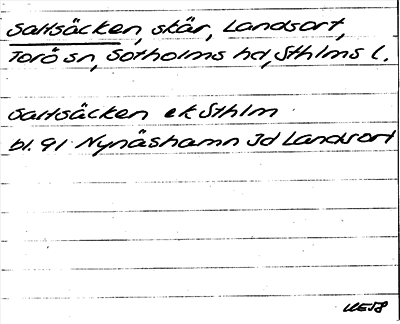 Saltsäcken, skär, Landsort,
Torö sn, Sotholms hd, Sthlms l.
Saltsäcken ek Sthlm
bl. 91 Nynäshamn Jd Landsort